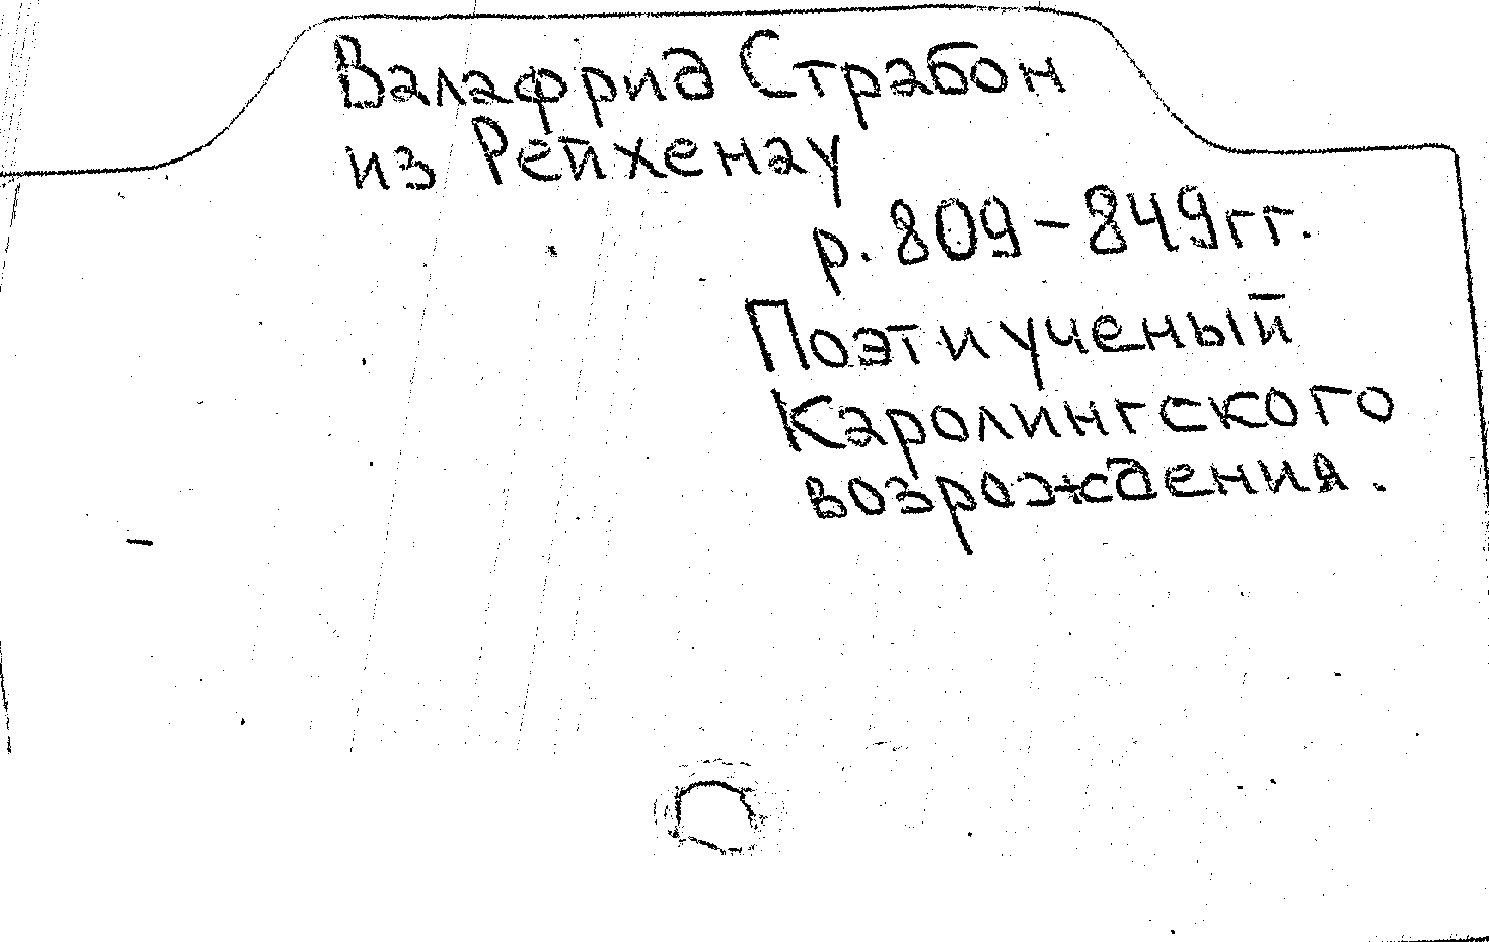 Валафрид Страбон
из Рейхенау
р. 809-849гг.
Поэт и ученый
Каролингского
возрождения.